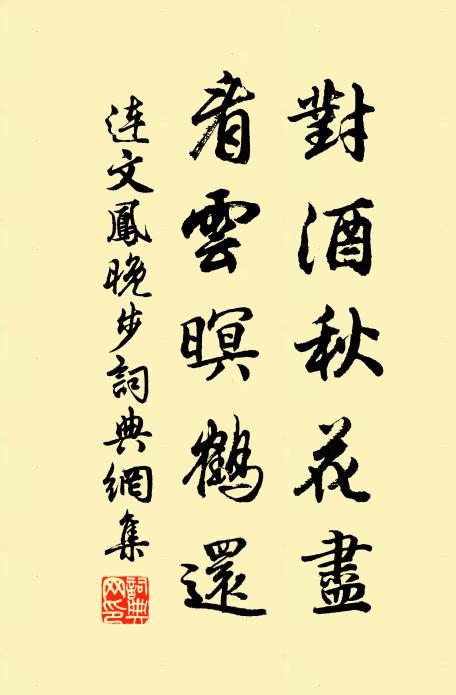 對酒秋花盡
看雲暝鶴還
連文鳳晚步詞典網集
詞典網印